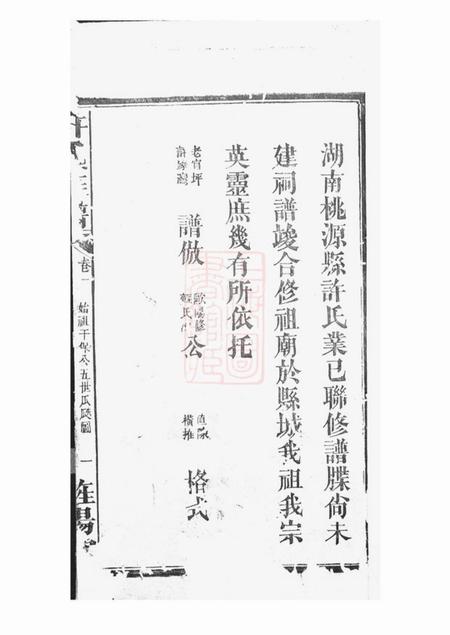 湖南桃源縣許氏業已聯修譜牒尙未
建祠譜竣合修祖廟於縣城我祖我宗
英靈庶幾有所依托
老官坪
譜倣
歐陽修
蘇氏
公
橫推
格式
許氏
卷一
始祖千保公五世瓜瓞圖
一